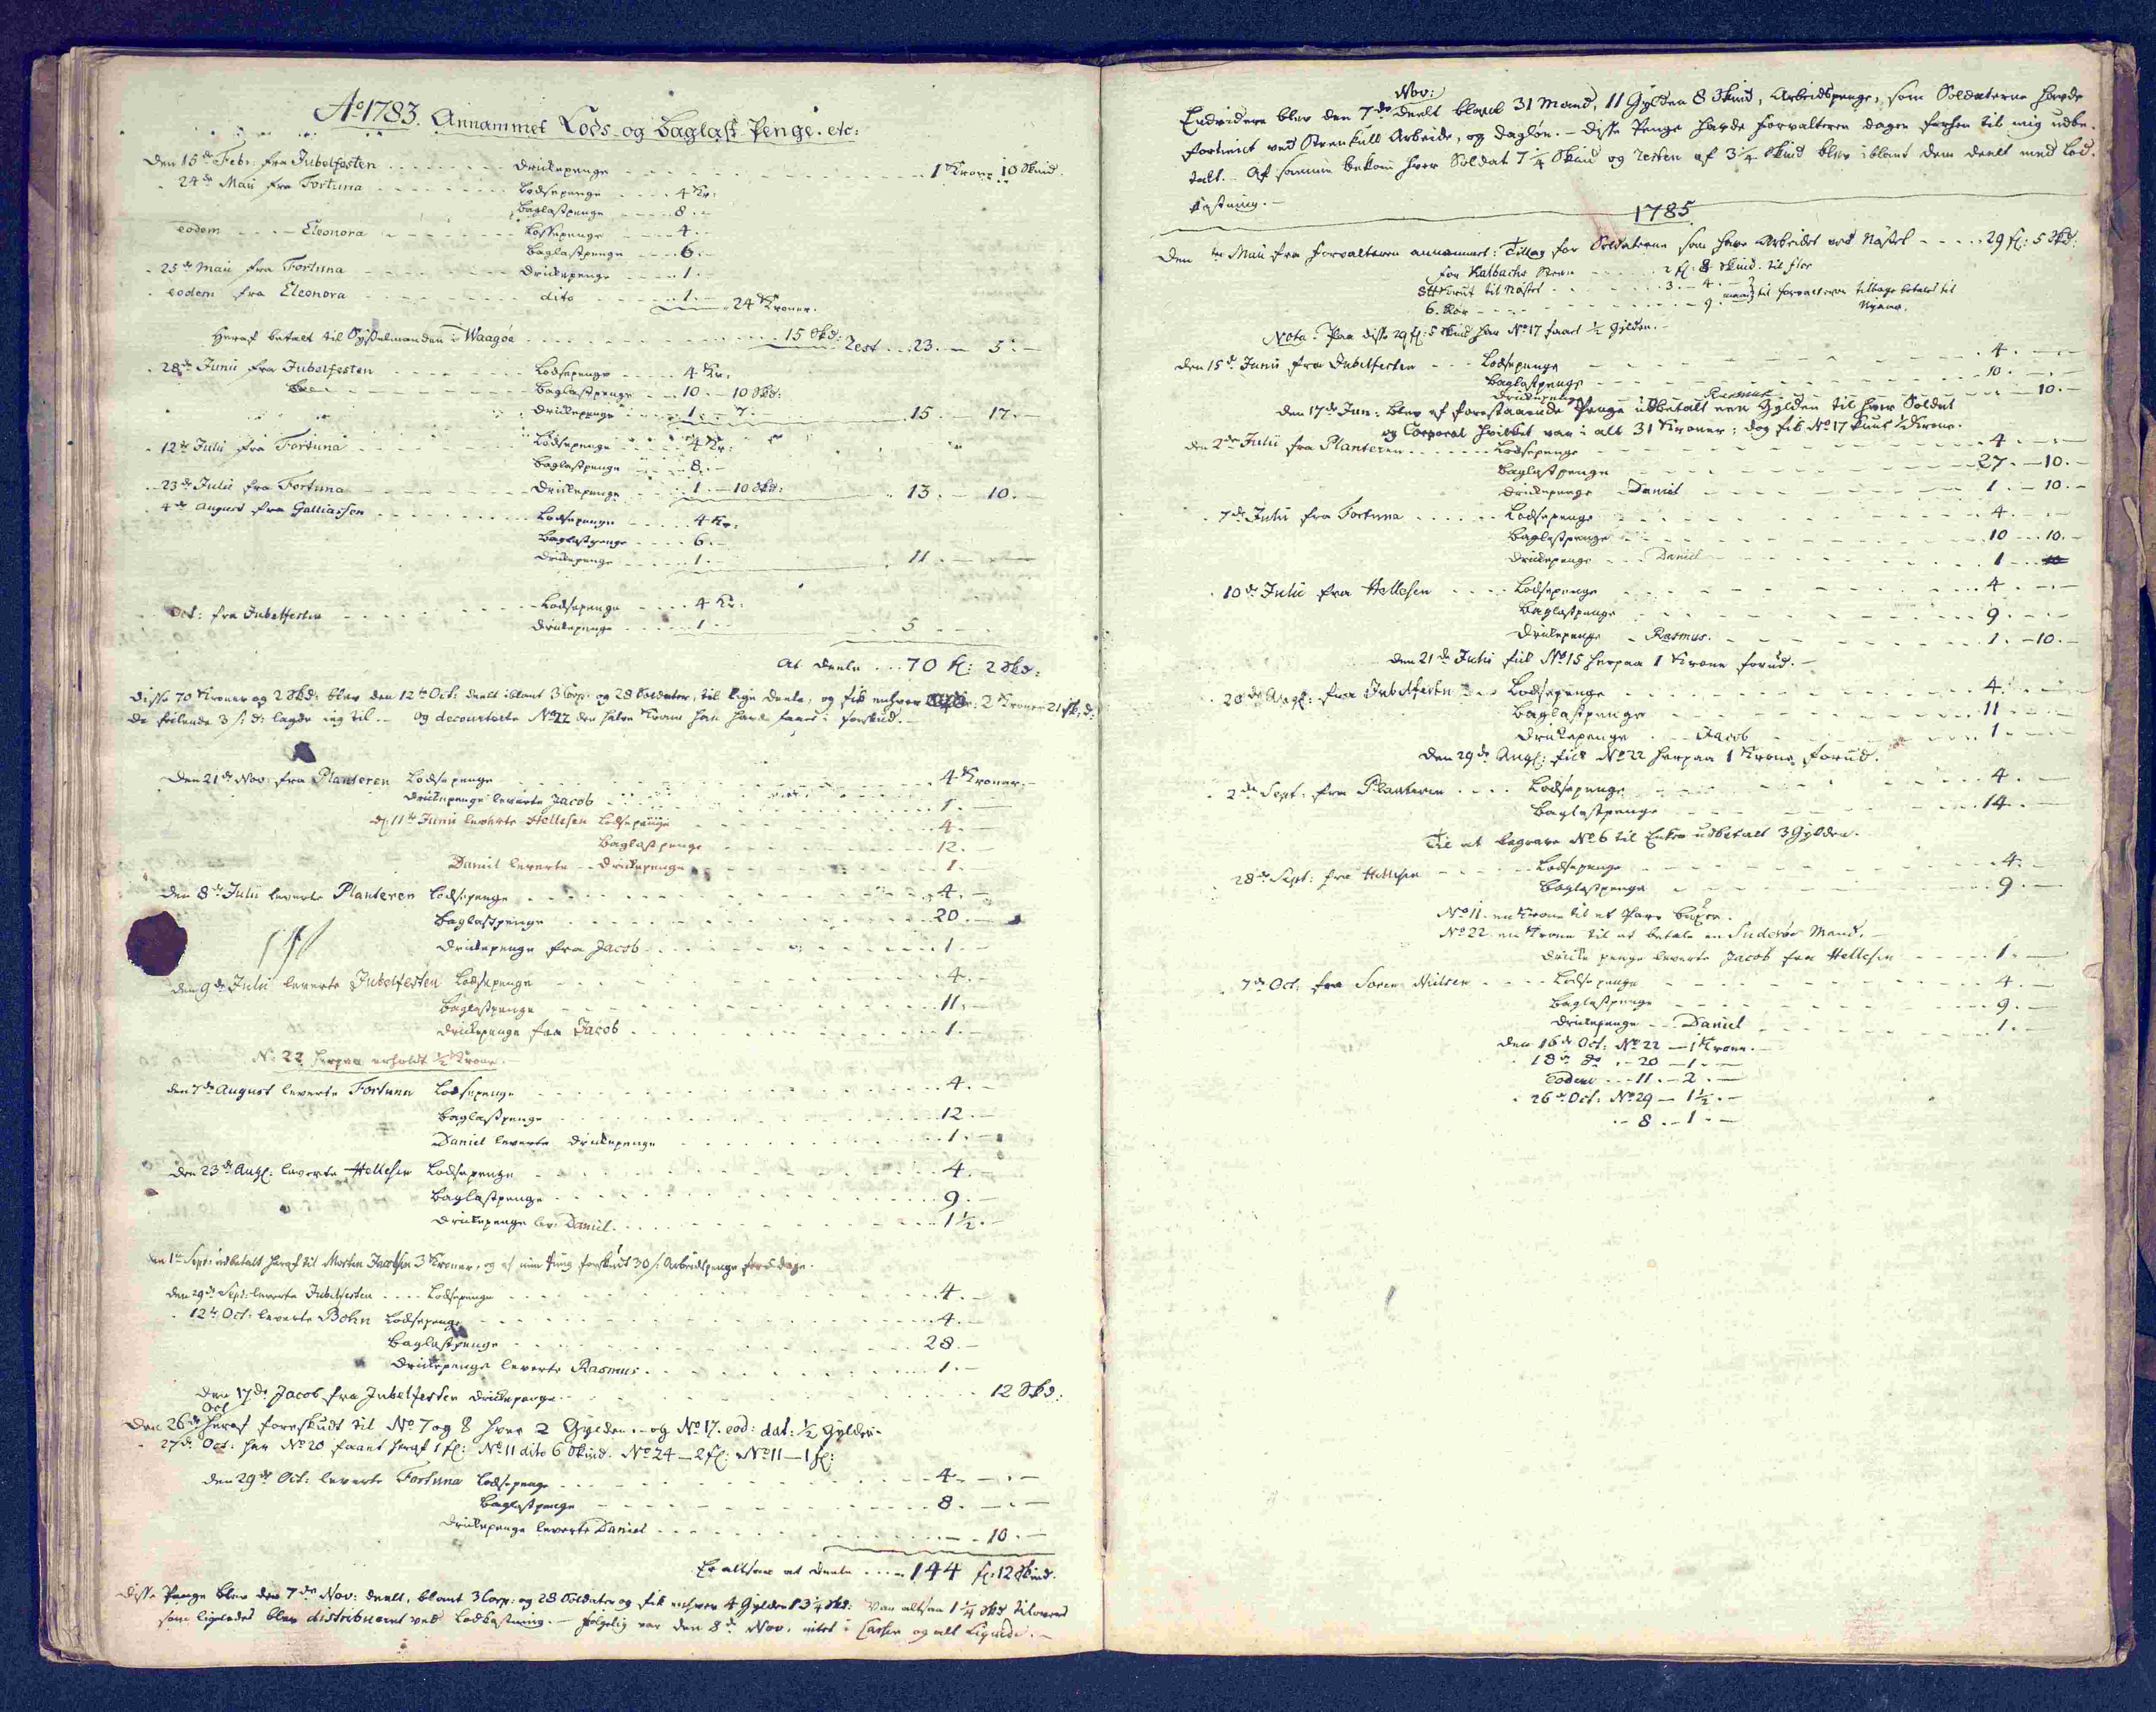 Ao 1783. Annammet Lods- og Baglast Penge. etc:
Den 15de Febr: fra Jubelfesten Drickepenge 1 Krone 10 Skind.
24de Maii fra Fortuna Lodsepenge 4 Kr:
Baglastpenge 8.-
eodem Eleonora Lossepenge 4.-
Baglastpenge 6.-
25de Maii fra Fortuna Drickepenge 1.-
eodem fra Eleonora dito 1.-
24 Kroner.
Heraf betalt til Sysselmanden i Waagøe 15 Skd: Rest 23.- 5.-
28de Junii fra Jubelfesten Lodsepenge 4 Kr:
Baglastpenge 10.- 10 Skd:
Drickepenge 1.- 7.- 15.- 17.-
12te Julii fra Fortuna Lodsepenge 4 Kr:
Baglastpenge 8.-
23de Julii fra Fortuna Drickepenge 1.- 10 Skd: 13.- 10.-
4de August fra Galliassen Lodsepenge 4 Kr:
Baglastpenge 6.-
Drickepenge 1.- 11.-
Oct: fra Jubelfesten Lodsepenge 4 Kr:
Drickepenge 1.- 5
At deele 70 fl: 2 Skd:
Disse 70 Kroner og 2 Skd: blev den 12te Oct: deelt iblant 3 Corp: og 28 Soldater, til lige deele, og fik enhver 2 Kroner 21 sk:d:
de feilende 3 s: d: lagde jeg til - og decourterte No 22 den halve Krone han havde faaet i forskud.-
Den 21de Nov: fra Planteren Lodsepenge 4 Kroner.-
Drickepenge leverte Jacob 1.-
d: 11te Junii leverte Hellesen Lodsepenge 4.-
Baglastpenge 12.-
Daniel leverte Drickepenge 1.-
Den 8de Julii leverte Planteren Lodsepenge 4.-
Baglastpenge 20.-
Drickepenge fra Jacob 1.-
den 9de Julii leverte Jubelfesten Lodsepenge 4.-
Baglastpenge 11.-
Drickepenge fra Jacob 1.-
No: 22 herpaa erholdt 1/2 Krone.-
den 7de August leverte Fortuna Lodsepenge 4.-
Baglastpenge 12.-
Daniel leverte Drickepenge 1.-
den 23de Augs: leverte Hellesen Lodsepenge 4.-
Baglastpenge 9.-
Drickepenge lev: Daniel 1 1/2.-
den 1te Sept: udbetalt heraf til Morten Jacobsen 3 Kroner, og af min Pung forskudt 30 s: Arbeidspenge for dage.
den 29de Sept: leverte Jubelfesten Lodsepenge 4.-
12te Oct: leverte Bohn Lodsepenge 4.-
Baglastpenge 28.-
Drickepenge leverte Rasmus 1.-
Den 17de Jacob fra Jubelfesten Drickepenge 12 Skd:
Oct
Den 26de heraf forskudt til No 7 og 8 hver 2 Gylden.- og No 17. eod: dat: 1/2 Gylden.
27de Oct: har No 20 faaet heraf 1 fl: No 11 dito 6 Skind. No 24 - 2 fl: No 11 - 1 fl:
den 29de Oct: leverte Fortuna Lodsepenge 4.-
Baglastpenge 8.-
Drickepenge leverte Daniel 10.-
Er altsaa at deele 144 fl: 12 Skind.
Disse Penge blev den 7de Nov: deelt, blant 3 Corp: og 28 Soldater og fik enhver 4 Gylden 13 1/4 Skd: Var altsaa 1 1/4 Skd tilovers
som ligeledes blev distribueret ved Lodkastning.- følgelig var den 8de Nov. intet i Cassen og alt Liqvidt.-
Nov:
Endvidere blev den 7de deelt blant 31 Mand, 11 Gylden 8 Skind, Arbeidspenge, som Soldaterne havde
fortient ved Steenkull Arbeide, og dagløn.- Disse Penge havde forvalteren dagen forhen til mig udbe-
talt. Af samme bekom hver Soldat 7 1/4 Skind og resten af 3 1/4 Skind blev iblant dem deelt med Lod-
kastning.-
1785
Den Maii fra forvalteren annammet: Tillag for Soldaterne som have Arbeidet ved Nastet 29 fl: 5 Skd:
for Kalbachs 2 fl: 8 Skind. til
til Nastet 3.- 4.-
6. 9. til forvalteren tilbage betalt til
Nota: Paa disse 29 fl: 5 Skind har No 17 faaet 1/2 Gylden.-
den 15de Junii fra Jubelfesten Lodsepenge 4.-
Baglastpenge 10.-
Drickepenge Rasmus 10.-
Den 17de Jun: blev af forestaaende Penge udbetalt een Gylden til hver Soldat
og Corporal hvilket var i alt 31 Kroner: dog fik No 17 kuns 1/2 Krone.
den 2de Julii fra Planteren Lodsepenge 4.-
Baglastpenge 27.- 10.-
Drickepenge Daniel 1.- 10.-
7de Julii fra Fortuna Lodsepenge 4.-
Baglastpenge 10 10.-
Drickepenge Daniel 1 10
10de Julii fra Hellesen Lodsepenge 4.-
Baglastpenge 9.-
Drickepenge Rasmus. 1.- 10.-
Den 21de Julii fik No 15 herpaa 1 Krone forud.-
20de Augs: fra Jubelfesten Lodsepenge 4.-
Baglastpenge 11.-
Drickepenge Jacob 1.-
Den 29de Augs: fick No 22 herpaa 1 Krone forud.
2de Sept: fra Planteren Lodsepenge 4.-
Baglastpenge 14.-
Til at begrave No 6 til Enken udbetalt 3 Gylden.
28de Sept: fra Hellesen Lodsepenge 4.-
Baglastpenge 9.-
No 11. en Krone til et Par Buxer.
No 22 en Krone til at betale en Suderøe Mand.-
Dricke penge leverte Jacob fra Hellesen 1.-
7de Oct: fra Søren Nielsen Lodsepenge 4.-
Baglastpenge 9.-
Drickepenge Daniel 1.-
Den 16de Oct: No 22 - 1 Krone.-
18de do - 20 - 1.-
Eodem - 11.- 2.-
26de Oct: No 29 - 1 1/2.-
- 8 - 1.-